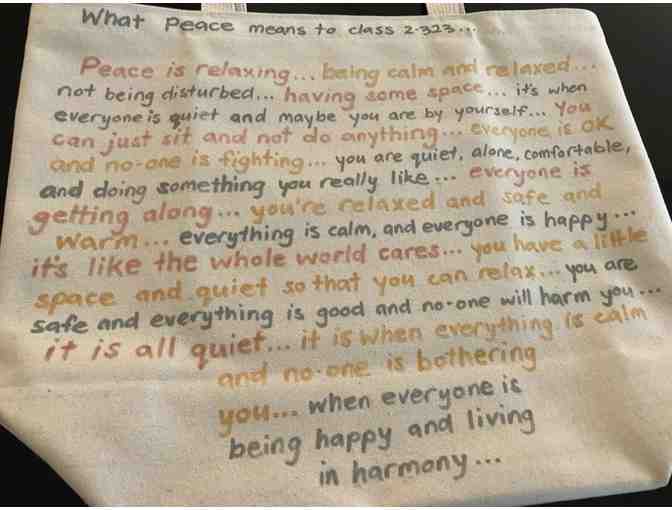 What Peace means to class 2-323...
Peace is relaxing... being calm and relaxed...
not being disturbed... having some space... it's when
everyone is quiet and maybe you are by yourself... You
can just sit and not do anything... everyone is OK
and no-one is fighting... you are quiet, alone, comfortable,
and doing something you really like... everyone is
getting along... you're relaxed and safe and
warm... everything is calm, and everyone is happy...
it's like the whole world cares... you have a little
space and quiet so that you can relax... you are
safe and everything is good and no-one will harm you...
it is all quiet... it is when everything is calm
and no-one is bothering
you... when everyone is
being happy and living
in harmony...